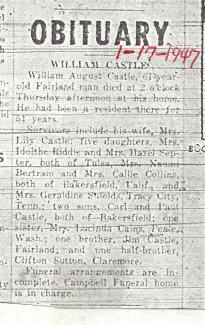 OBITUARY
1-17-1947
WILLIAM CASTLE
William August Castle, 61-year-
old Fairland man died at 2 o'clock
Thursday afternoon at his home.
He had been a resident there for
51 years.
Survivors include his wife, Mrs.
Lily Castle; five daughters, Mrs.
Idolthe Riddle and Mrs. Hazel Sen-
ter, both of Tulsa, Mrs. Naomi
Bertram and Mrs. Callie Collins,
both of Bakersfield, Calif., and
Mrs. Geraldine Shields, Tracy City,
Tenn.; two sons, Carl and Paul
Castle, both of Bakersfield; one
sister, Mrs. Lucinda Cains,
Wash.; one brother, Jim Castle,
Fairland; and one half-brother,
Clifton Sutton, Claremore.
Funeral arrangements are in-
complete. Campbell Funeral home
is in charge.